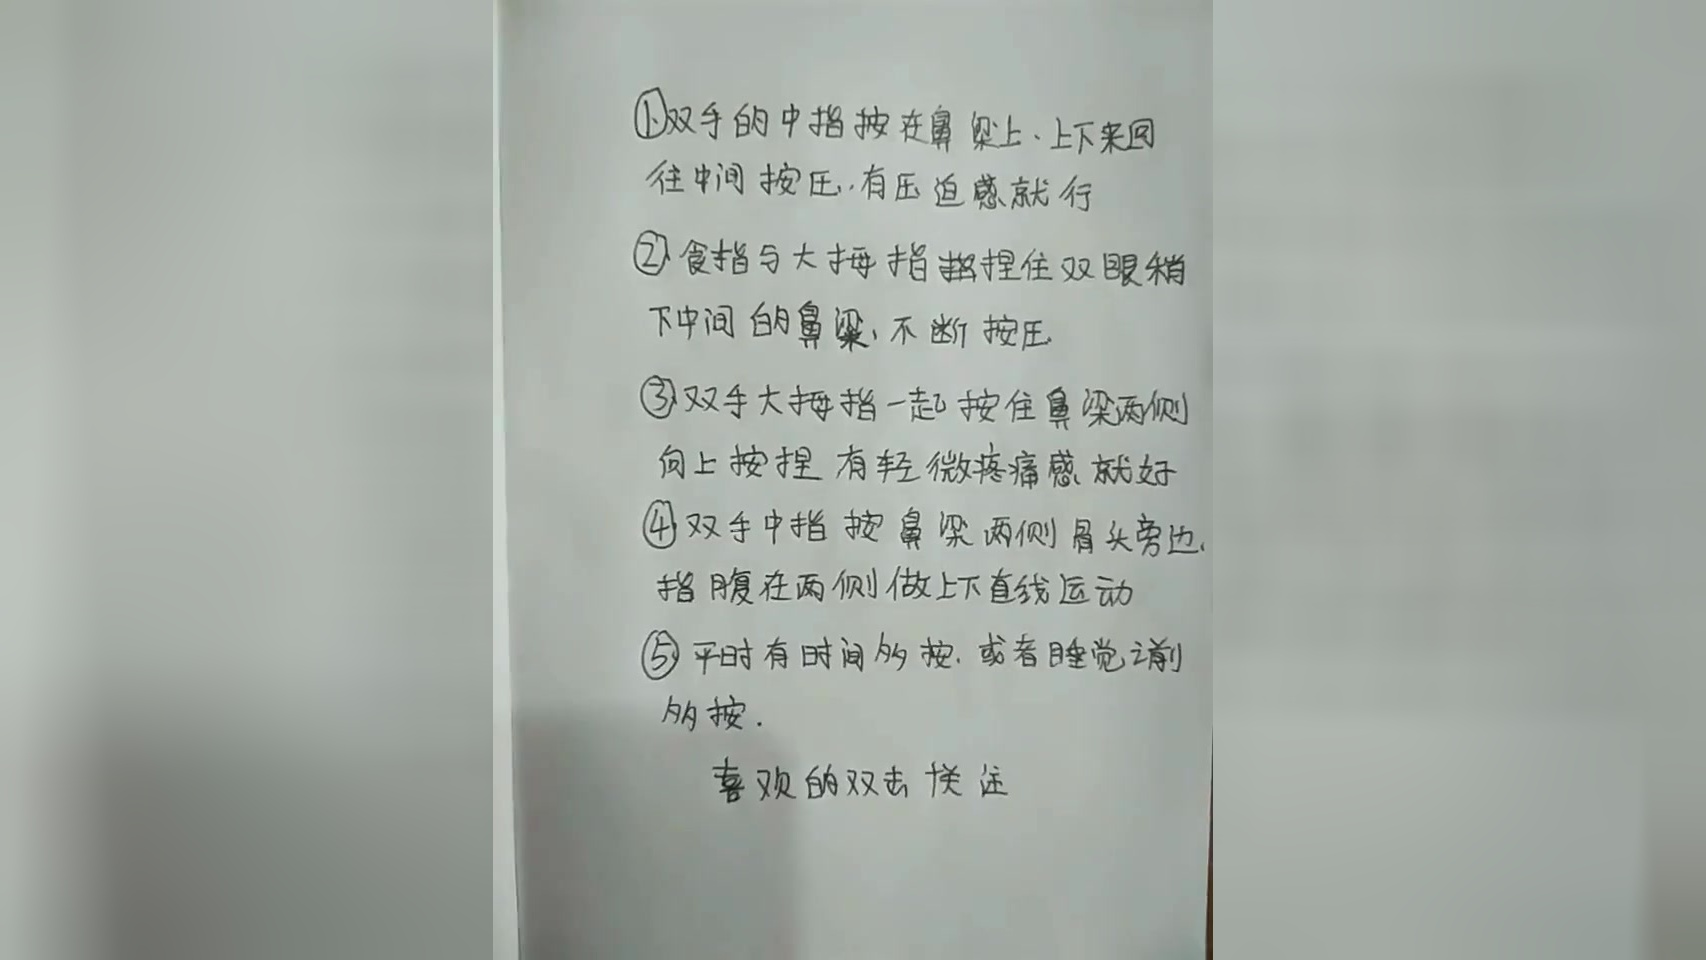 ①双手的中指按在鼻梁上、上下来回
往中间按压,有压迫感就行
②食指与大拇指捏住双眼稍
下中间的鼻梁、不断按压
③双手大拇指一起按住鼻梁两侧
向上按捏 有轻微疼痛感就好
④双手中指按鼻梁两侧骨头旁边、
指腹在两侧做上下直线运动
⑤平时有时间多按.或者睡觉之前
多按.
喜欢的双击关注